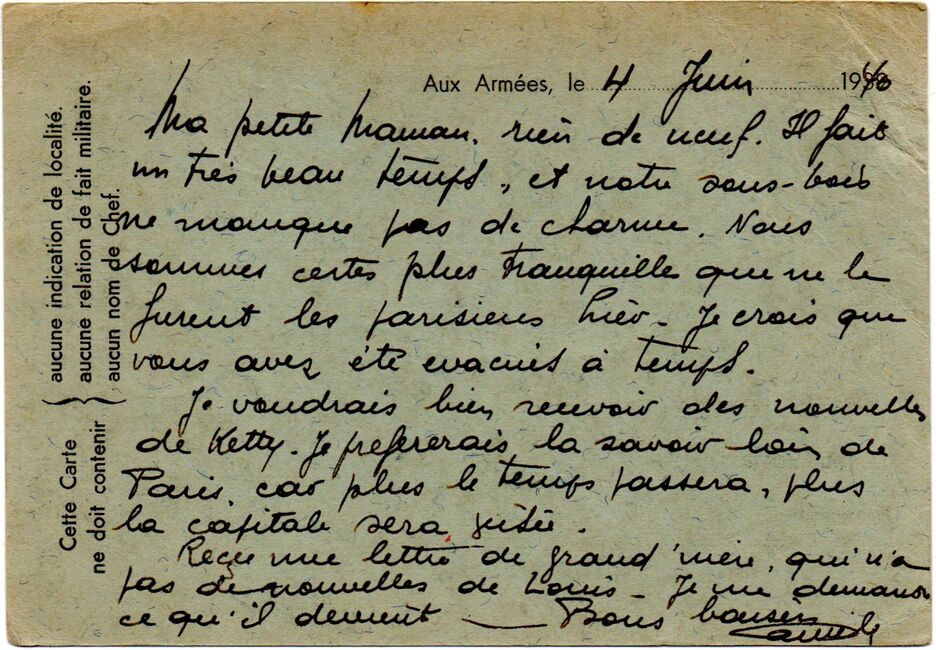 Aux Armées, le 4 Juin 1940
Ma petite Maman, rien de neuf. Il fait
un très beau temps, et notre sous-bois
ne manque pas de charme. Nous
sommes certes plus tranquilles que ne le
furent les parisiens hier. Je crois que
vous avez été evacués à temps.
Je voudrais bien recevoir des nouvelles
de Ketty. Je prefererais la savoir loin de
Paris, car plus le temps passera, plus
la capitale sera visée.
Reçu une lettre de grand'mère, qui n'a
pas de nouvelles de Louis - Je me demande
ce qu'il devient — Bons baisers
Cette Carte
ne doit contenir
aucune indication de localité.
aucune relation de fait militaire.
aucun nom de Chef.